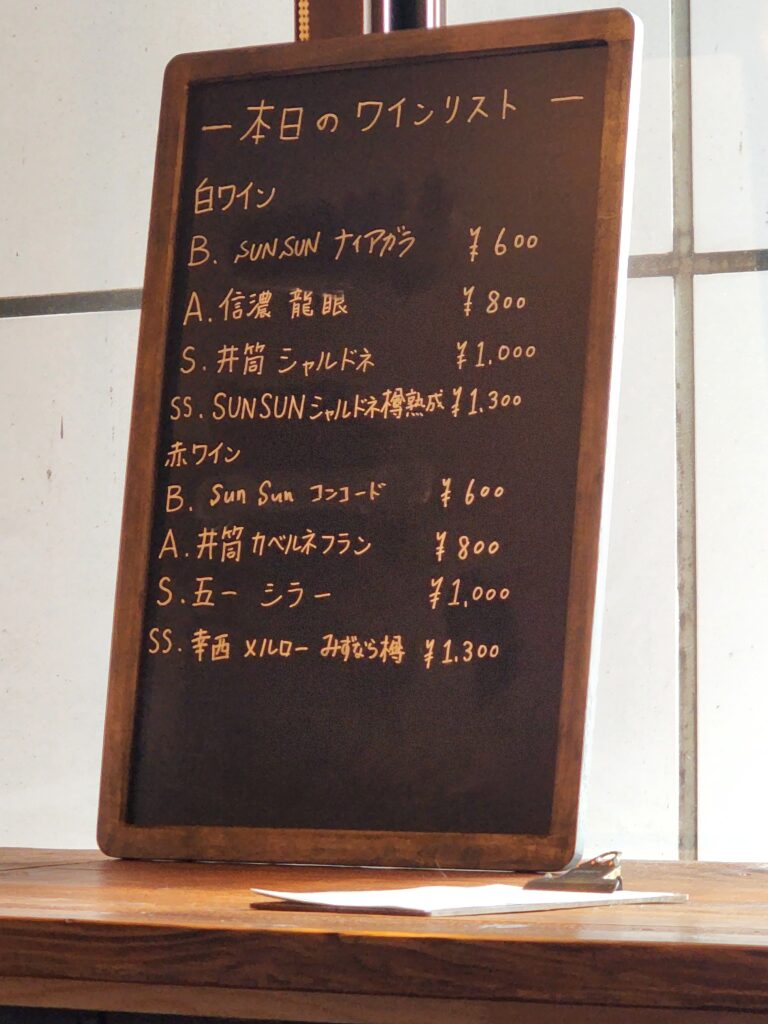 ー 本日のワインリスト ー
白ワイン
B. SUNSUN ナイアガラ ¥600
A. 信濃 龍眼 ¥800
S. 井筒 シャルドネ ¥1,000
SS. SUNSUN シャルドネ樽熟成 ¥1,300
赤ワイン
B. Sun Sun コンコード ¥600
A. 井筒 カベルネフラン ¥800
S. 五一 シラー ¥1,000
SS. 幸西 メルロー みずなら樽 ¥1,300